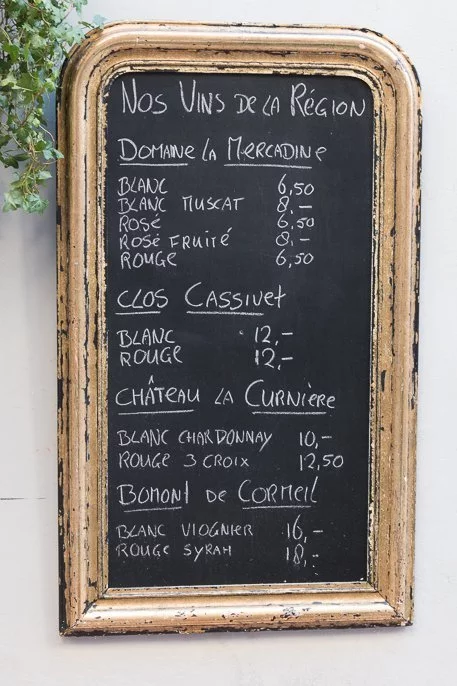 Nos Vins de la Région
Domaine la Mercadine
Blanc 6,50
Blanc Muscat 8,-
Rosé 6,50
Rosé Fruité 8,-
Rouge 6,50
Clos Cassivet
Blanc 12,-
Rouge 12,-
Château la Curnière
Blanc Chardonnay 10,-
Rouge 3 Croix 12,50
Bomont de Cormeil
Blanc Viognier 16,-
Rouge Syrah 18,-